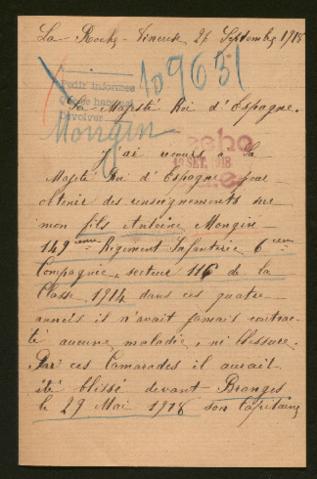 La Roche-Vineuse 27 Septembre 1918
109631
Pedir informes
Devolver
Sa Majesté Roi d'Espagne.
Mongin
J'ai recours à Sa
SET. 1918
Majesté Roi d'Espagne pour
obtenir des renseignements sur
mon fils Antoine Mongin
149eme Regiment Infanterie 6eme
Compagnie, secteur 116 de la
Classe 1914 dans ces quatre
années il n'avait jamais contrac-
té aucune maladie, ni blessure.
Par ces Camarades il aurait
été blissé devant Branges
le 29 Mai 1918 son Capitaine